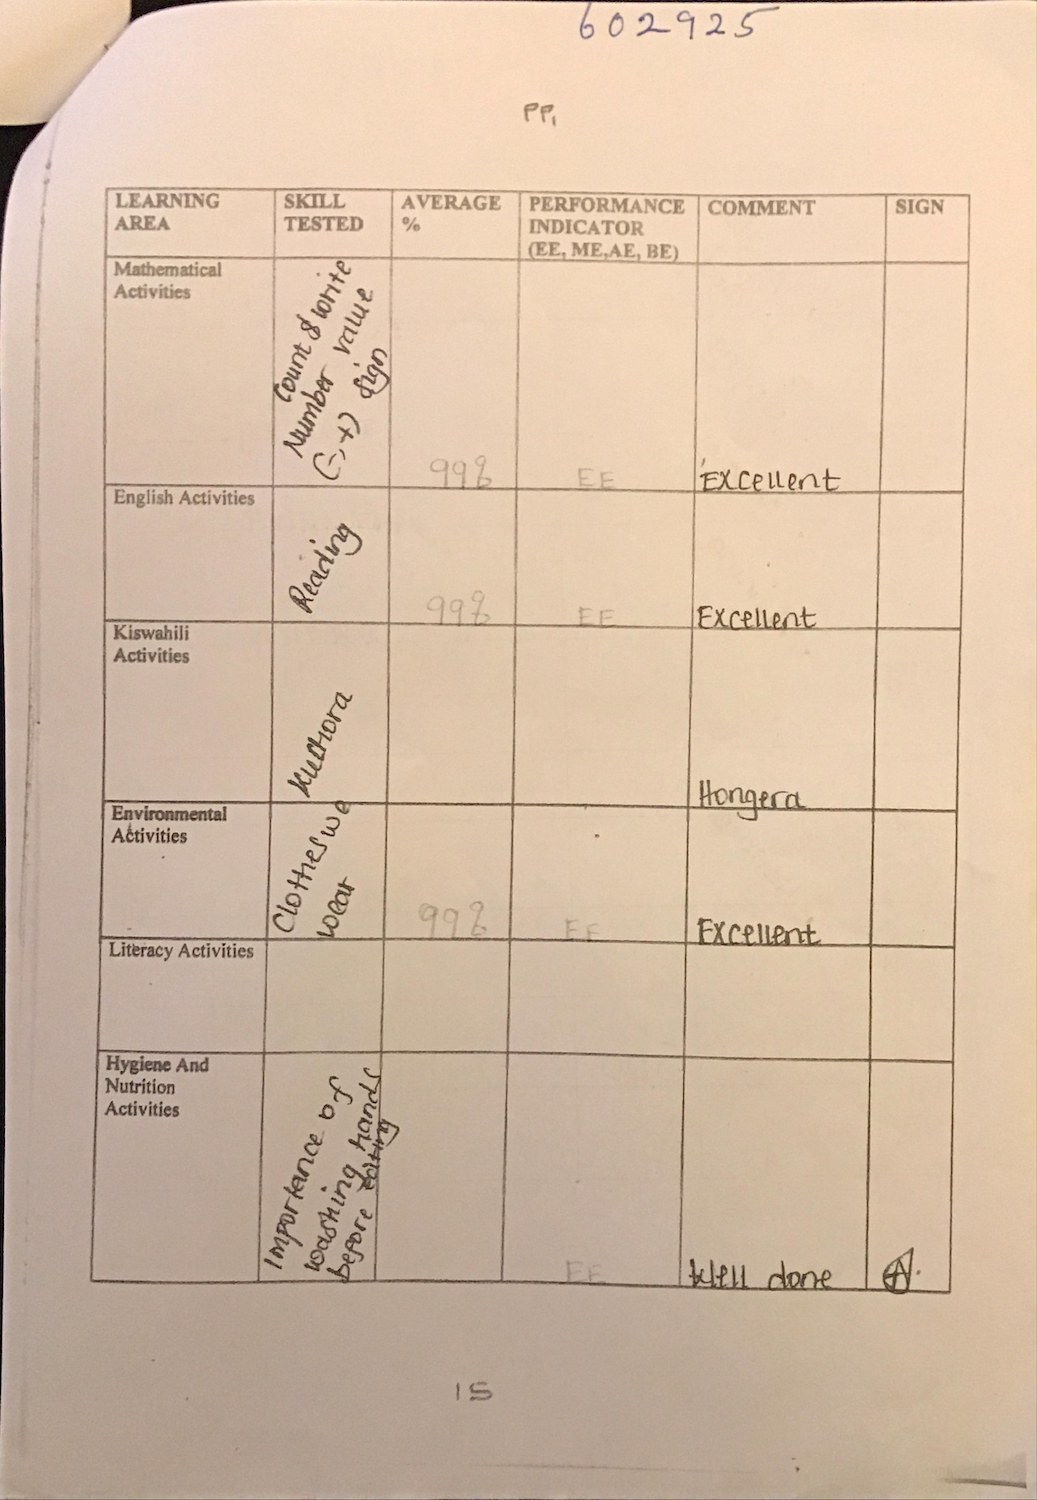 602925
PP1
LEARNING AREA
SKILL TESTED
AVERAGE %
PERFORMANCE INDICATOR (EE, ME,AE, BE)
COMMENT
SIGN
Mathematical Activities
Count & write
Number value
(-, +) sign
99%
EE
Excellent
English Activities
Reading
99%
EE
Excellent
Kiswahili Activities
Kuchora
Hongera
Environmental Activities
Clothes we
wear
99%
EE
Excellent
Literacy Activities
Hygiene And Nutrition Activities
Importance of
washing hands
before eating
EE
Well done
15